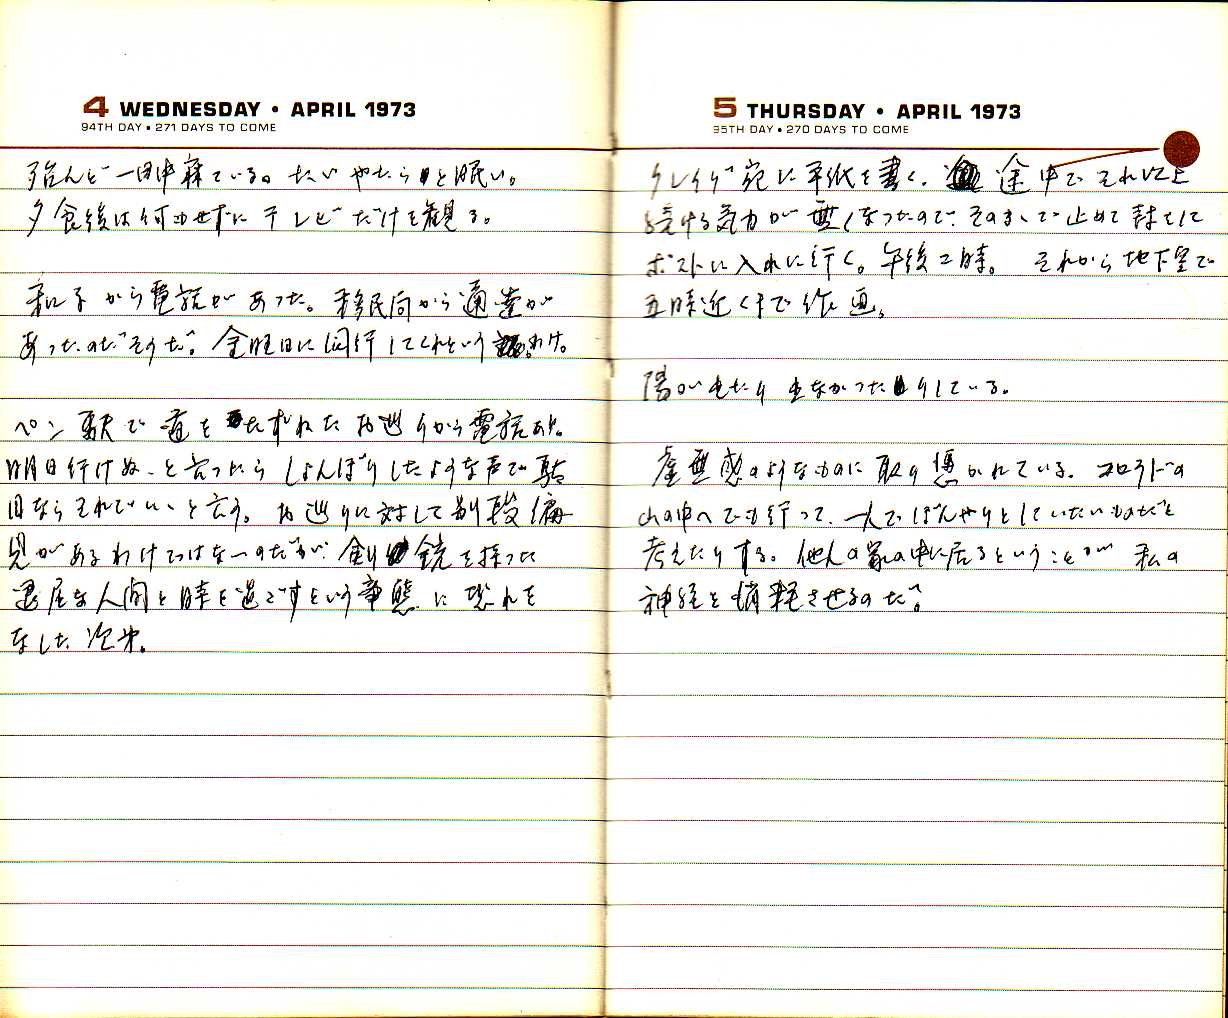 4 WEDNESDAY • APRIL 1973
94TH DAY • 271 DAYS TO COME
殆んど一日中寝ている。たゞやたらと眠い。
夕食後は何もせずにテレビだけを観る。
和子から電話があった。移民局から通達が
あったのだそうだ。金曜日に同行してくれというわけ。
ペン駅で道をたずねたお巡りから電話あり。
明日行けぬ、と言ったらしょんぼりしたような声で
日ならそれでいいと言う。お巡りに対して別段偏
見があるわけではないのだが、銃を持った
退屈な人間と時を過ごすという事態に恐れを
なした次第。
5 THURSDAY • APRIL 1973
95TH DAY • 270 DAYS TO COME
クレイグ宛に手紙を書く。途中でそれ以上
続ける気力が無くなったので、そのまゝで止めて封をして
ポストに入れに行く。午後二時。それから地下室で
五時近くまで作画。
陽が出たり出なかったりしている。
虚無感のようなものに取り憑かれている。コロラドの
山の中へでも行って、一人でぼんやりとしていたいものだと
考えたりする。他人の家の中に居るということが私の
神経を消耗させるのだ。